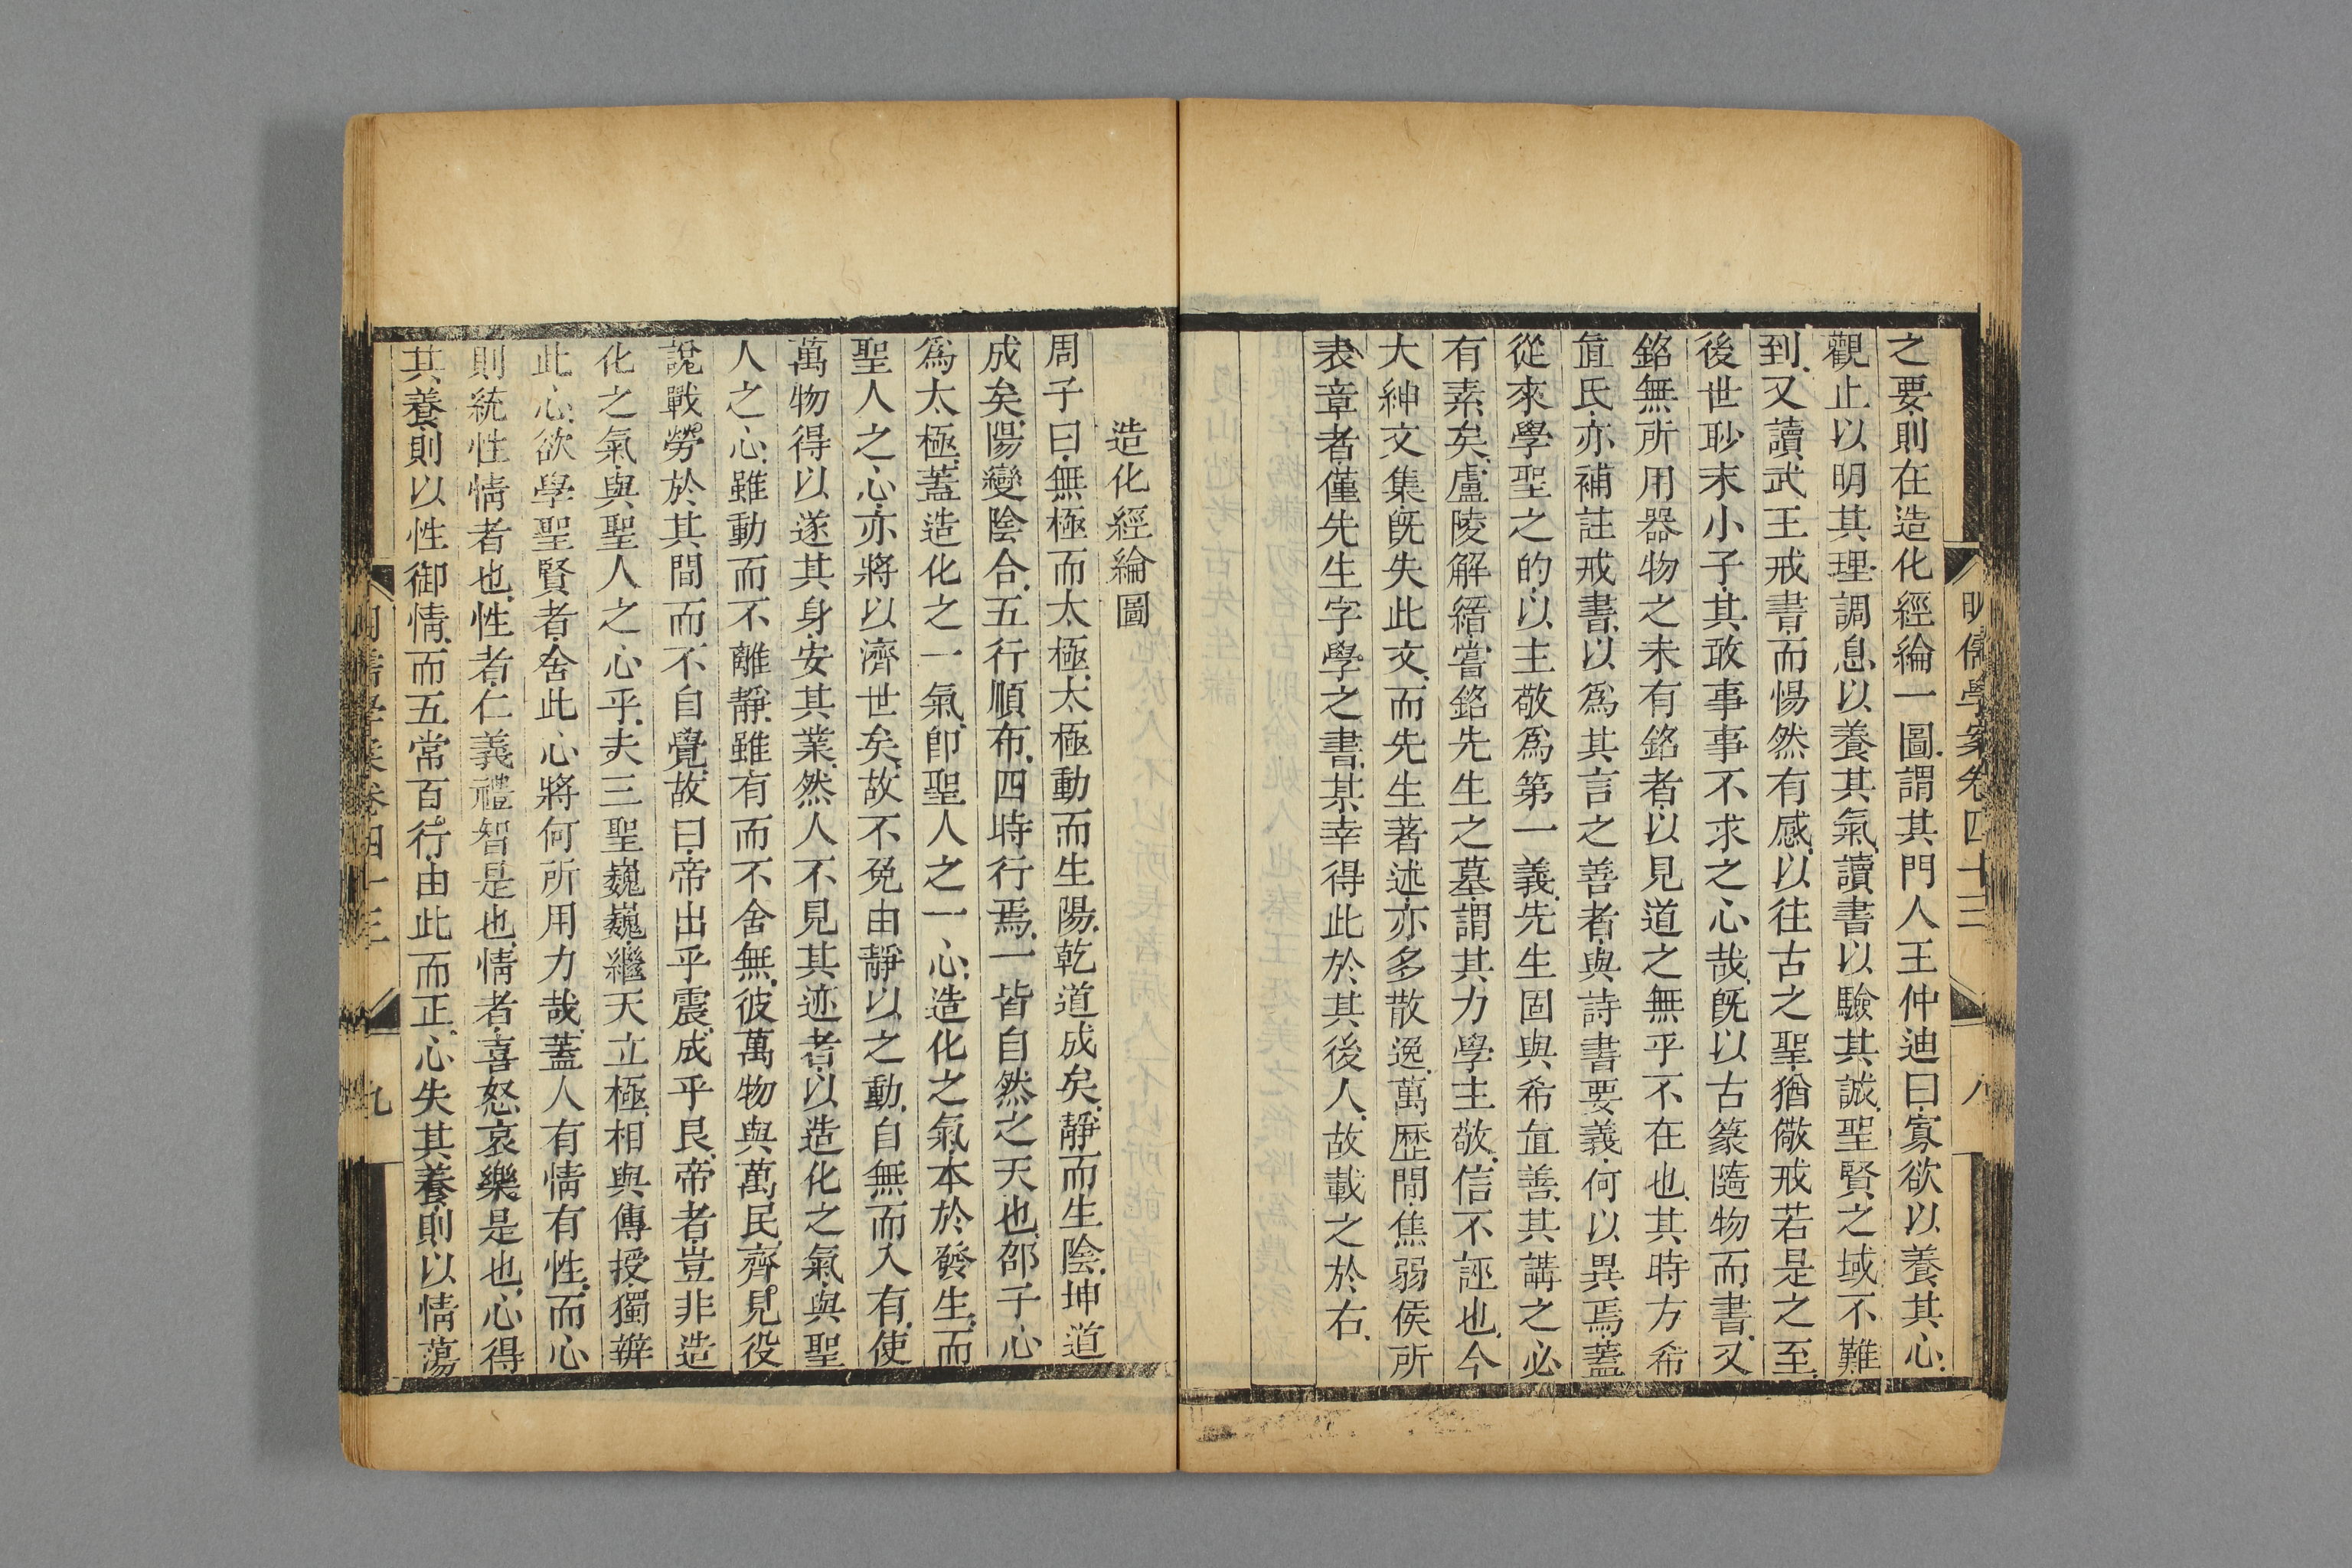 明儒學案卷四十三
八
之要則在造化經綸一圖謂其門人王仲迪曰寡欲以養其心
觀止以明其理調息以養其氣讀書以驗其誠聖賢之域不難
到又讀武王戒書而惕然有感以往古之聖猶儆戒若是之至
後世眇末小子其敢事事不求之心哉旣以古篆隨物而書又
銘無所用器物之未有銘者以見道之無乎不在也其時方希
直氏亦補註戒書以爲其言之善者與詩書要義何以異焉蓋
從來學聖之的以主敬爲第一義先生固與希直善其講之必
有素矣盧陵解縉嘗銘先生之墓謂其力學主敬信不誣也今
大紳文集旣失此文而先生著述亦多散逸萬歷閒焦弱侯所
表章者僅先生字學之書某幸得此於其後人故載之於右
造化經綸圖
周子曰無極而太極太極動而生陽乾道成矣靜而生陰坤道
成矣陽變陰合五行順布四時行焉一皆自然之天也邵子心
爲太極蓋造化之一氣卽聖人之一心造化之氣本於發生而
聖人之心亦將以濟世矣故不免由靜以之動自無而入有使
萬物得以遂其身安其業然人不見其迹者以造化之氣與聖
人之心雖動而不離靜雖有而不舍無彼萬物與萬民齊見役
說戰勞於其間而不自覺故曰帝出乎震成乎艮帝者豈非造
化之氣與聖人之心乎夫三聖巍巍繼天立極相與傳授獨辨
此心欲學聖賢者舍此心將何所用力哉蓋人有情有性而心
則統性情者也性者仁義禮智是也情者喜怒哀樂是也心得
其養則以性御情而五常百行由此而正心失其養則以情蕩
明儒學案卷四十三
九